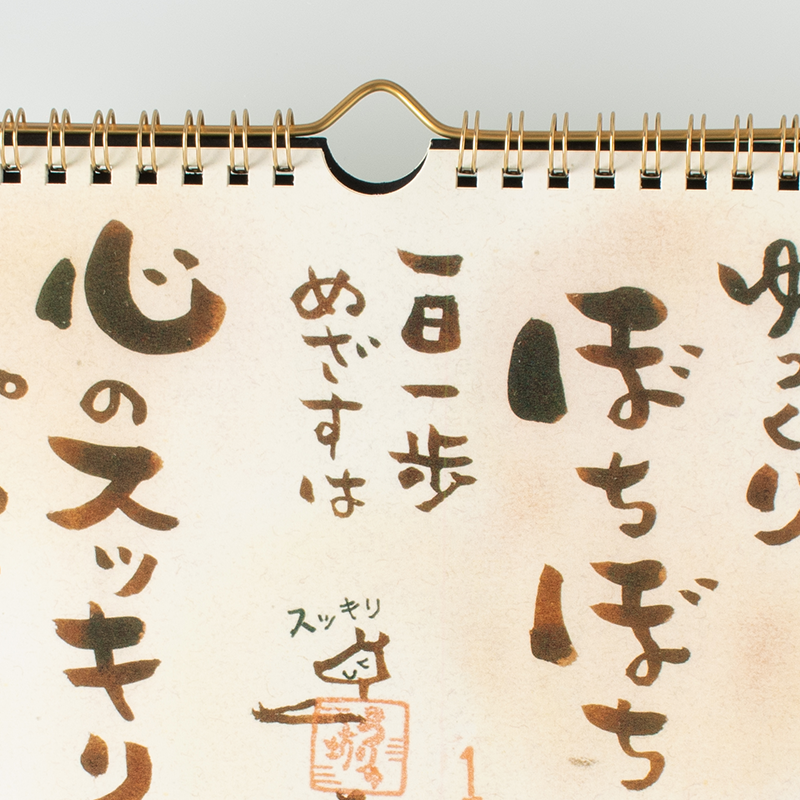 ゆっくり
ぼちぼち
一日一歩
めざすは
心のスッキリ
スッキリ
1